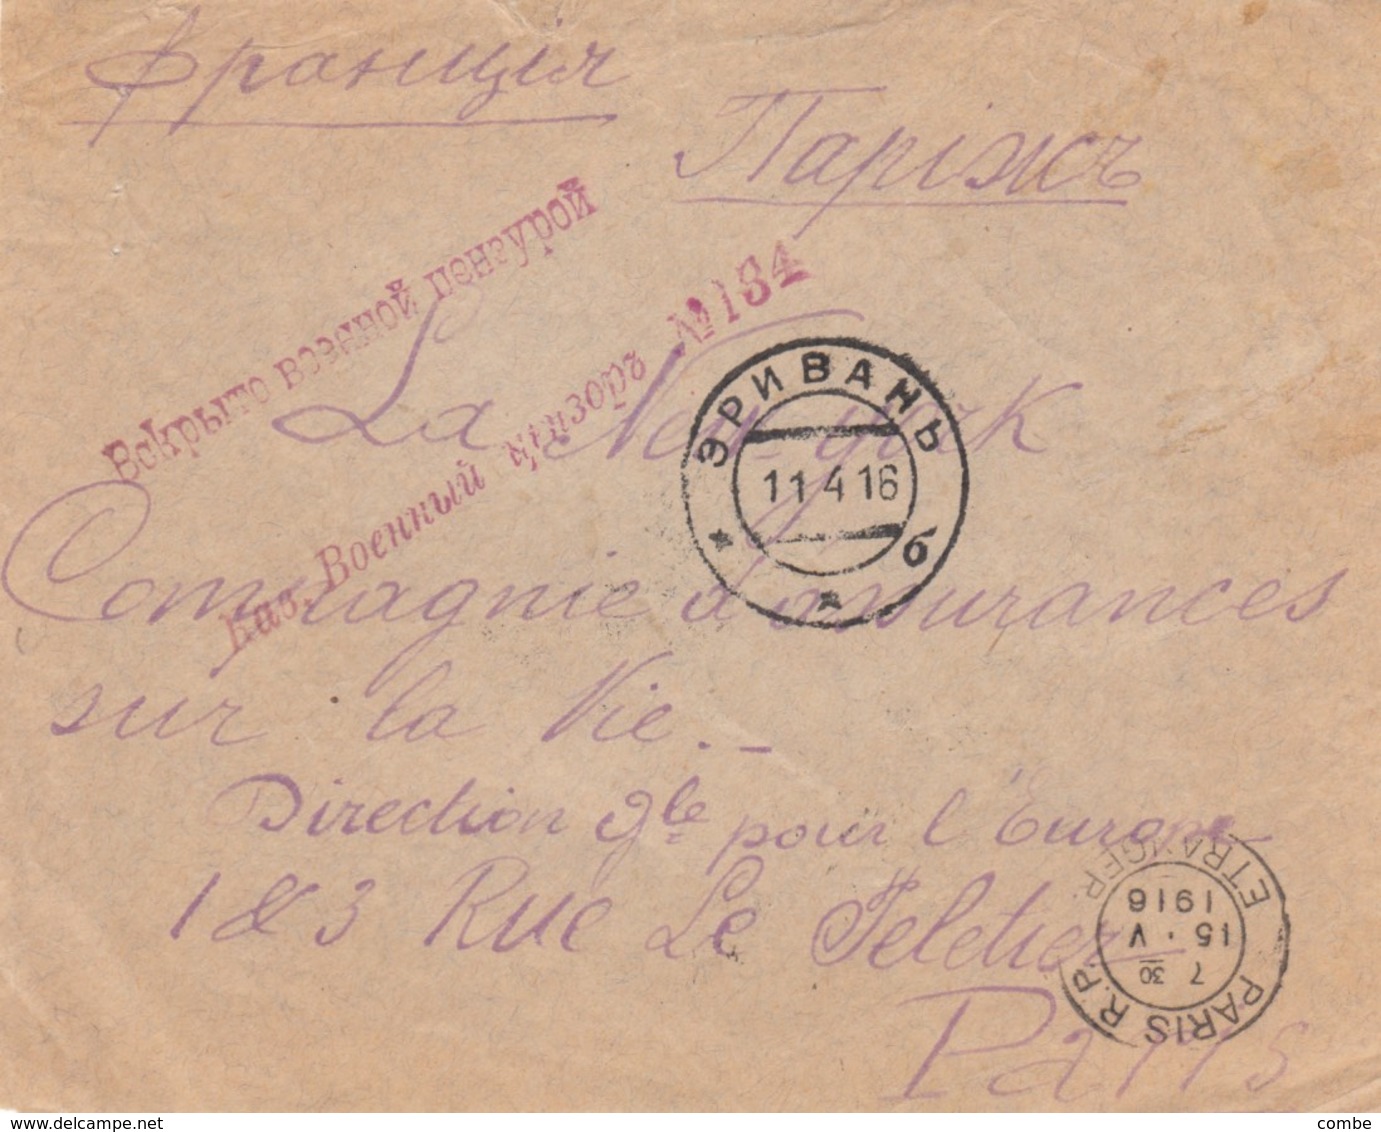 Франція
Паріжъ
Вскрыто военной цензурой
Кав. Военный цензоръ №184
La New-york
Compagnie d'assurances
sur la Vie.-
Direction gle pour l'Europe
1 & 3 Rue Le Peletier
Paris
ЭРИВАНЬ
11 4 16
б
PARIS R.P. ETRANGER
7 30
15 · V
1916
www.delcampe.net
combe